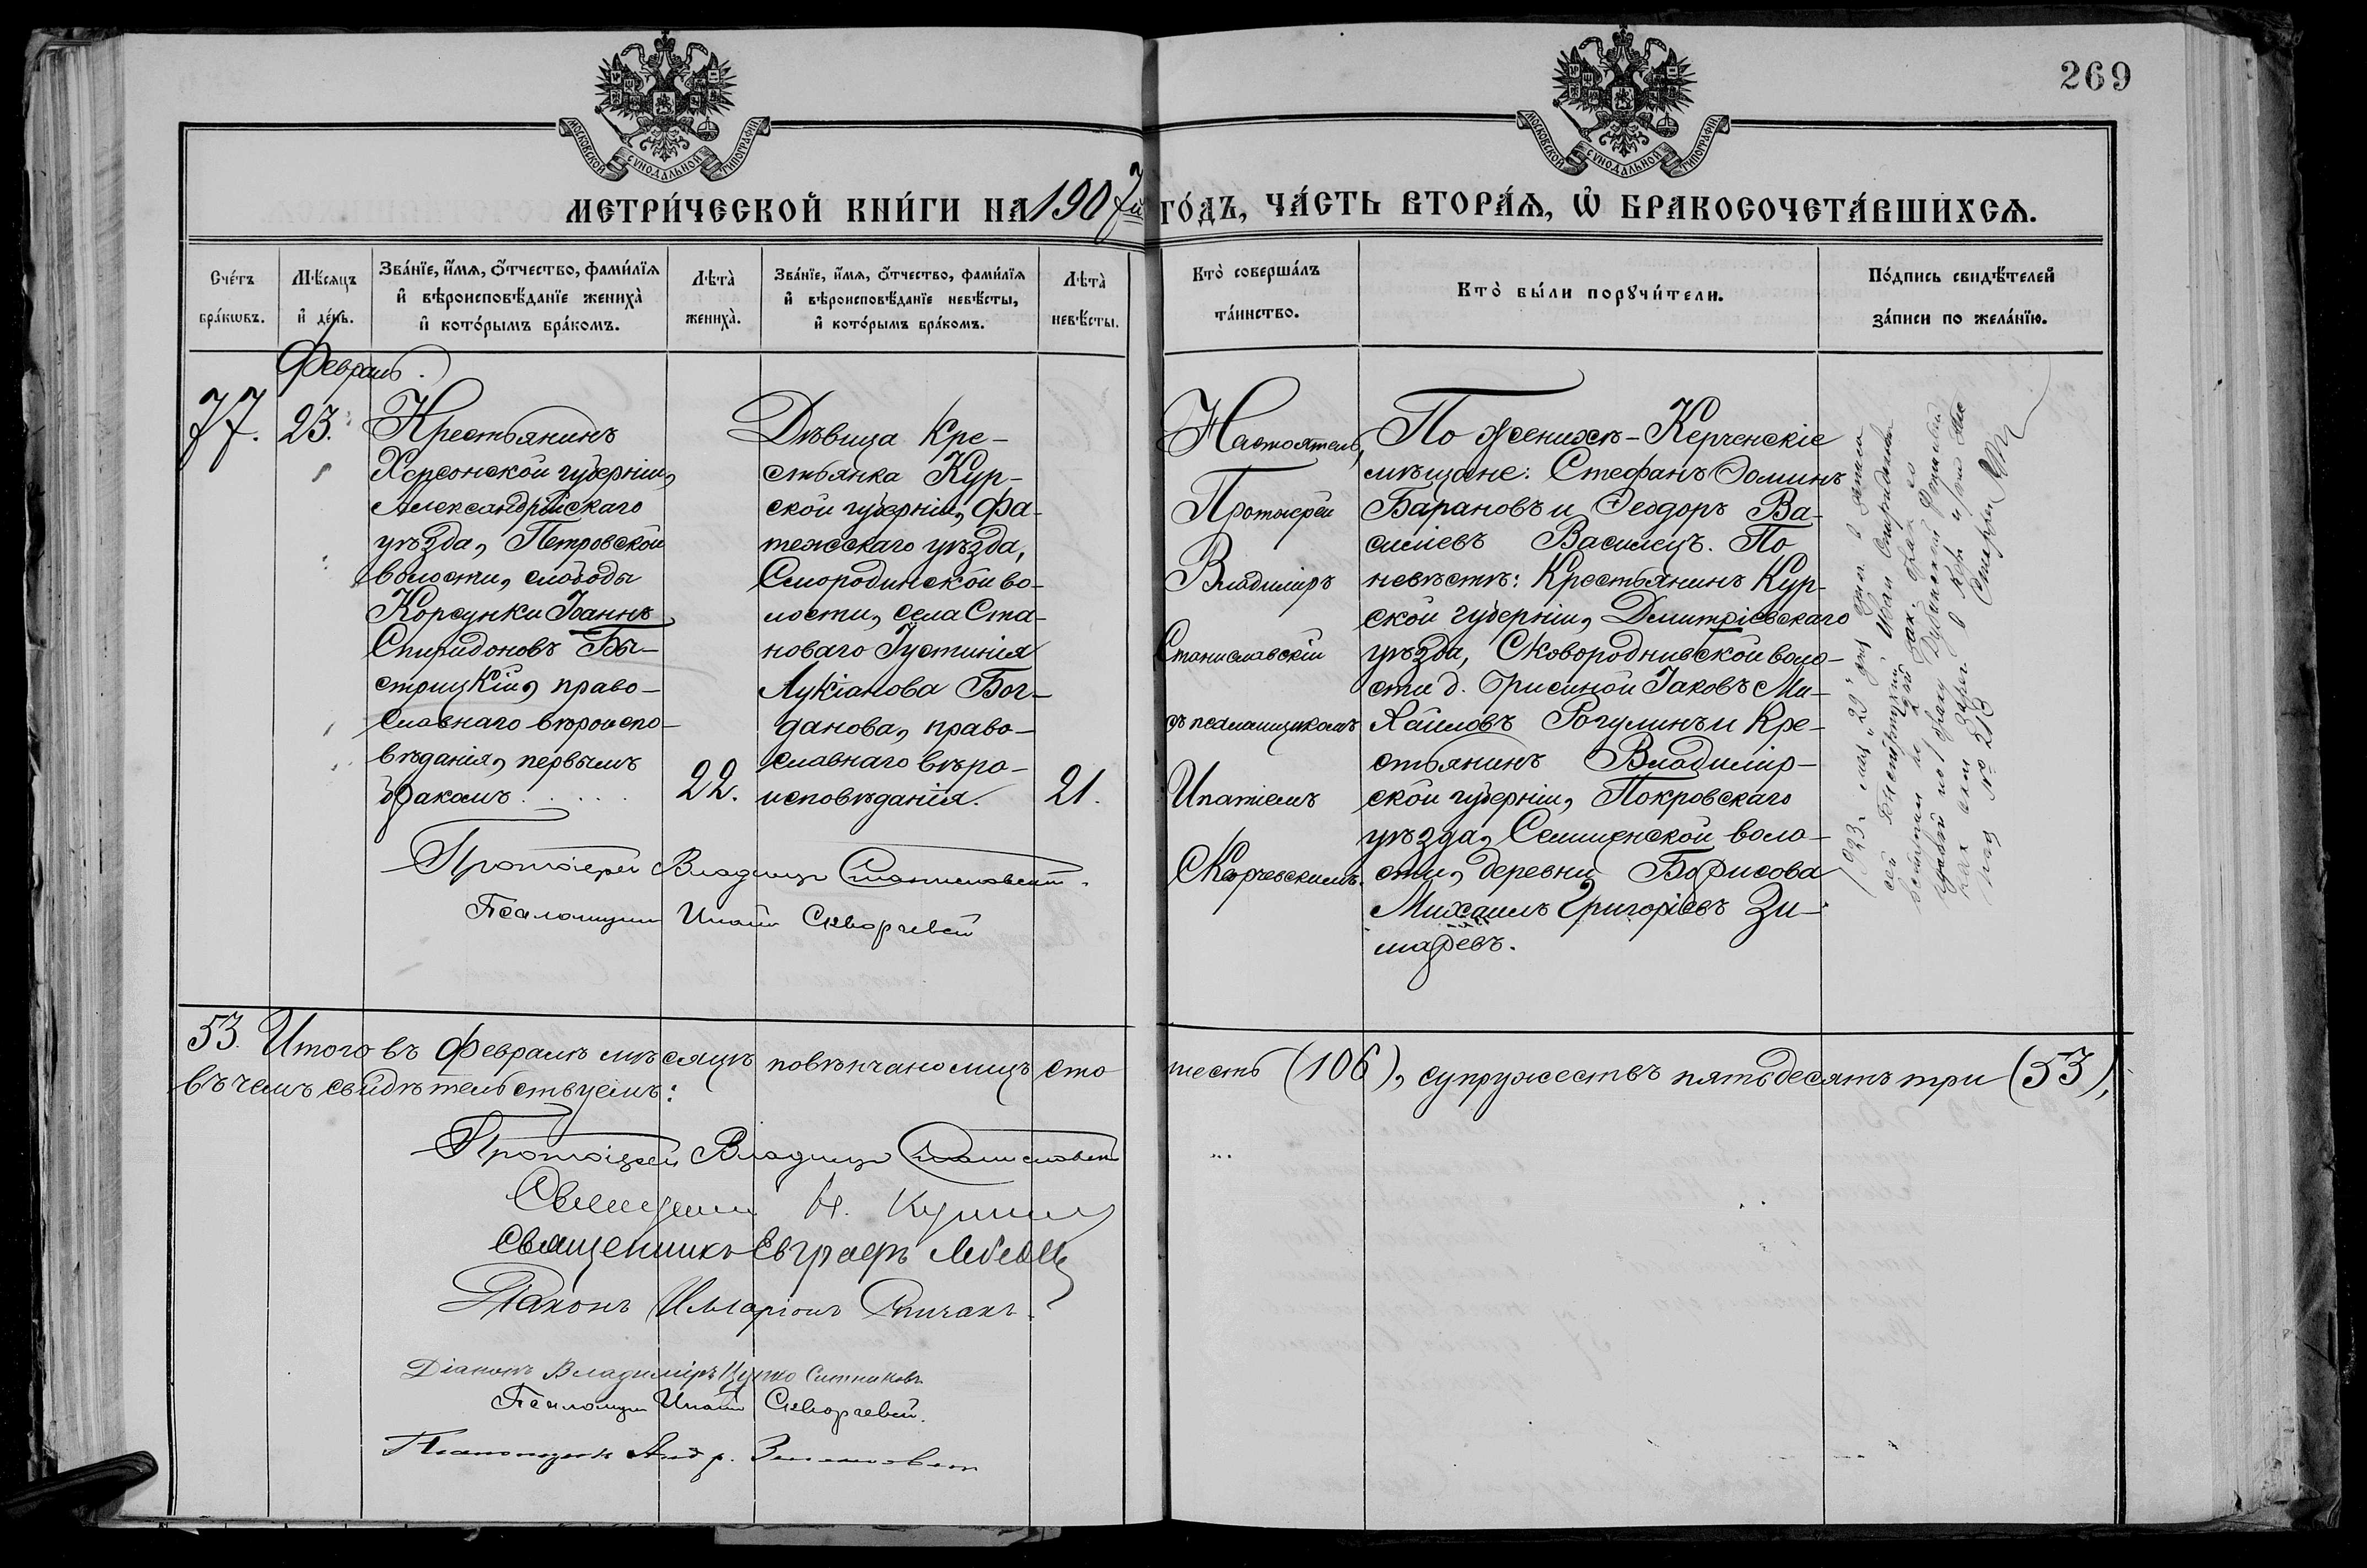 269
МОСКОВСКОЙ СѴНОДАЛЬНОЙ ТИПОГРАФІИ
МОСКОВСКОЙ СѴНОДАЛЬНОЙ ТИПОГРАФІИ
МЕТРИ́ЧЕСКОЙ КНИ́ГИ НА 1907й ГО́ДЪ, ЧА́СТЬ ВТОРА́Ѧ, Ѡ҆ БРАКОСОЧЕТА́ВШИХСѦ.
Сче́тъ
бра́кѡвъ.
Мѣ́сяцъ
и҆ де́нь.
Зва́нїе, и҆́мѧ, ѻ҆́тчество, фами́лїѧ
и҆ вѣроисповѣ́данїе жениха̀
и҆ кото́рымъ бра́комъ.
Лѣ́та̀
жениха̀.
Зва́нїе, и҆́мѧ, ѻ҆́тчество, фами́лїѧ
и҆ вѣроисповѣ́данїе невѣ́сты,
и҆ кото́рымъ бра́комъ.
Лѣ́та̀
невѣ́сты.
Кто̀ соверша́лъ
та́инство.
Кто̀ бы́ли порꙋчи́тели.
По́дпись свидѣ́телей
за́писи по жела́нїю.
Февраль.
77.
23.
Крестьянинъ
Херсонской губерніи,
Александрійскаго
уѣзда, Петровской
волости, слободы
Корсунки Іоаннъ
Спиридоновъ Бы-
стрицкій, право-
славнаго вѣроиспо-
вѣданія, первымъ
бракомъ.....
22.
Дѣвица Кре-
стьянка Кур-
ской губерніи, Фа-
тежскаго уѣзда,
Смородинской во-
лости, села Ста-
новаго Іустинія
Лукіанова Бог-
данова, право-
славнаго вѣро-
исповѣданія.
21.
Настоятель,
Протоіерей
Владиміръ
Станиславскій
съ псаломщикомъ
Ипатіемъ
Скорчевскимъ.
По женихѣ - Керченскіе
мѣщане: Стефанъ Ѳоминъ
Барановъ и Ѳеодоръ Ва-
силіевъ Василецъ. По
невѣстѣ: Крестьянинъ Кур-
ской губерніи, Дмитріевскаго
уѣзда, Сковороднивской воло-
сти д. Орисиной Іаковъ Ми-
хаиловъ Рогулинъ и Кре-
стьянинъ Владимір-
ской губерніи, Покровскаго
уѣзда, Семинской воло-
сти, деревни Борисова
Михаилъ Григоріевъ Зи-
маревъ.
1923 г. мая "29" дня
Иван Спиридонов
№ 213
Протоіерей Владиміръ Станиславскій.
Псаломщикъ Ипатій Скворчевскій
53. Итого въ Февралѣ мѣсяцѣ повѣнчано лицъ сто шесть (106), супружествъ пятьдесятъ три (53),
въ чемъ свидѣтельствуемъ:
Протоіерей Владиміръ Станиславскій
Священникъ Н.
Священникъ Евграфъ
Діаконъ Иларіонъ Спичакъ.
Діаконъ Владиміръ Цупко Ситниковъ
Псаломщикъ Ипатій Скворчевскій.
Псаломщикъ Андр.